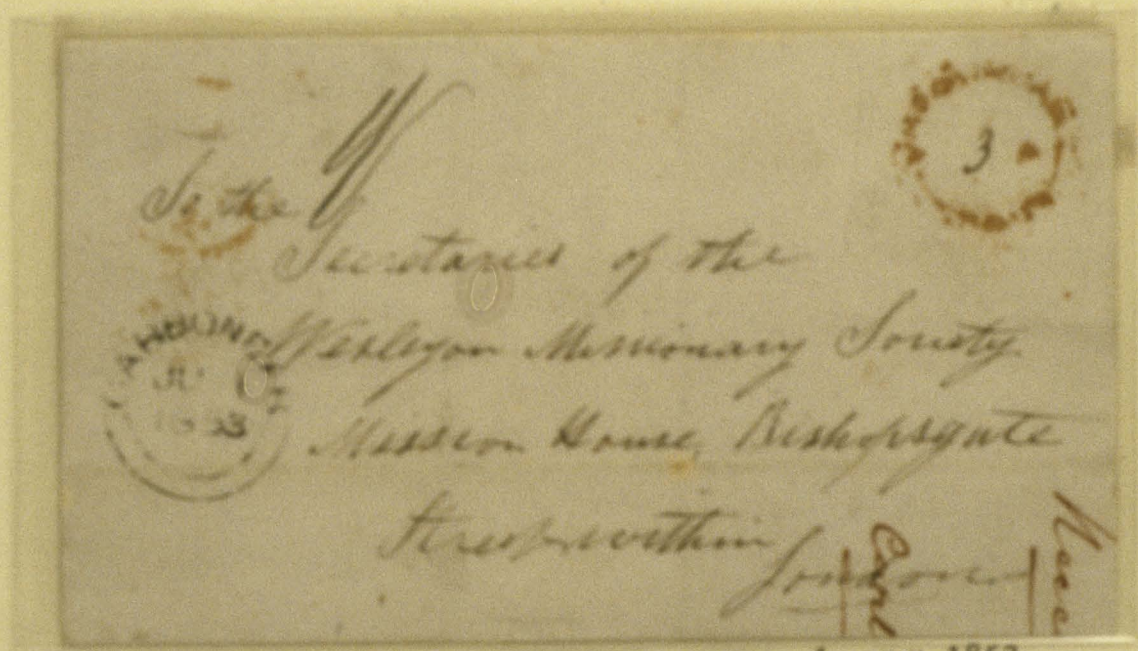 3
To the
Secretaries of the
Wesleyan Missionary Society
Mission House, Bishopsgate
Street within
London
1853